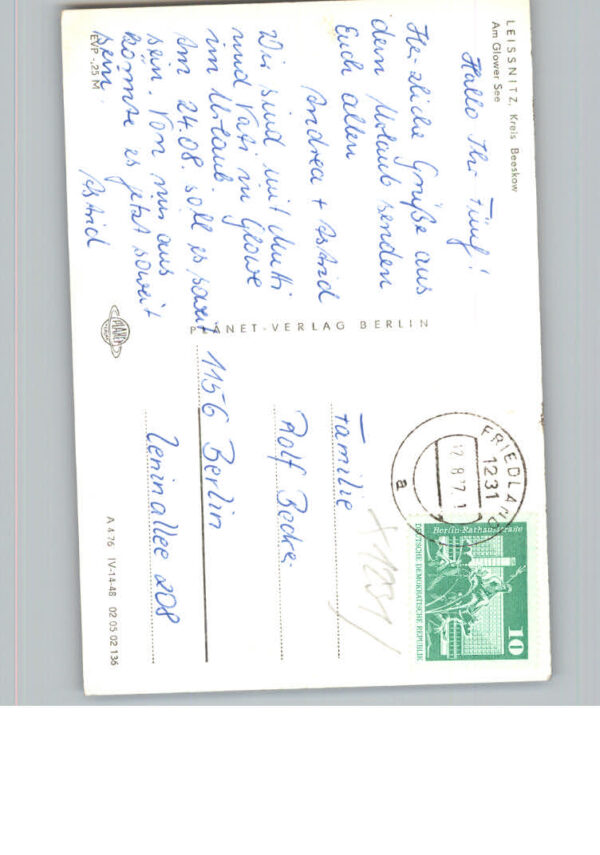 LEISSNITZ, Kreis Beeskow
Am Glower See
Hallo Ihr Fünf!
Herzliche Grüße aus
dem Urlaub senden
Euch allen
Andrea + Astrid
Wir sind mit Mutti
und Vati in Glowe
im Urlaub.
Am 24.08. soll es soweit
sein. Von mir aus
könnte es jetzt soweit
sein.
Astrid
EVP -,25 M
PLANET-VERLAG BERLIN
FRIEDLAND
1231
a
Berlin-Rathausstraße
DEUTSCHE DEMOKRATISCHE REPUBLIK
10
Familie
Rolf Becker
1156 Berlin
Leninallee 208
A 4 76 IV-14-48 02 05 02 136